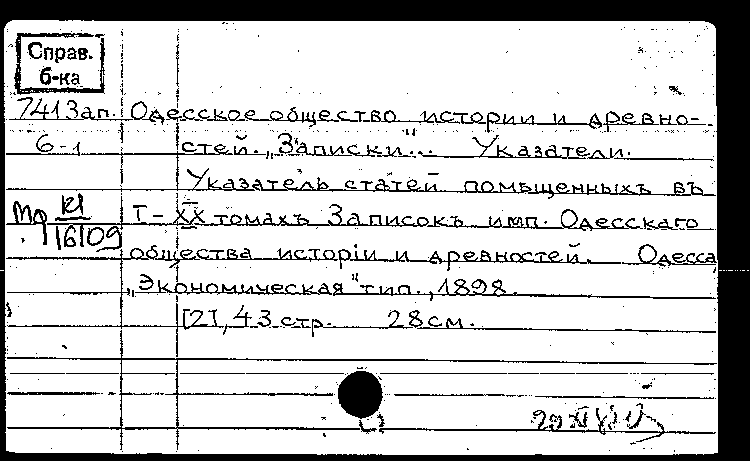 Справ.
б-ка
7413ап. Одесское общество истории и древно-
6-1 стей. „Записки"... Указатели.
Указатель статей помѣщенныхъ въ
Мф К1 I-XX томахъ Записокъ имп. Одесскаго
16109 общества исторіи и древностей. Одесса,
„Экономическая" тип., 1898.
[2], 43 стр. 28 см.